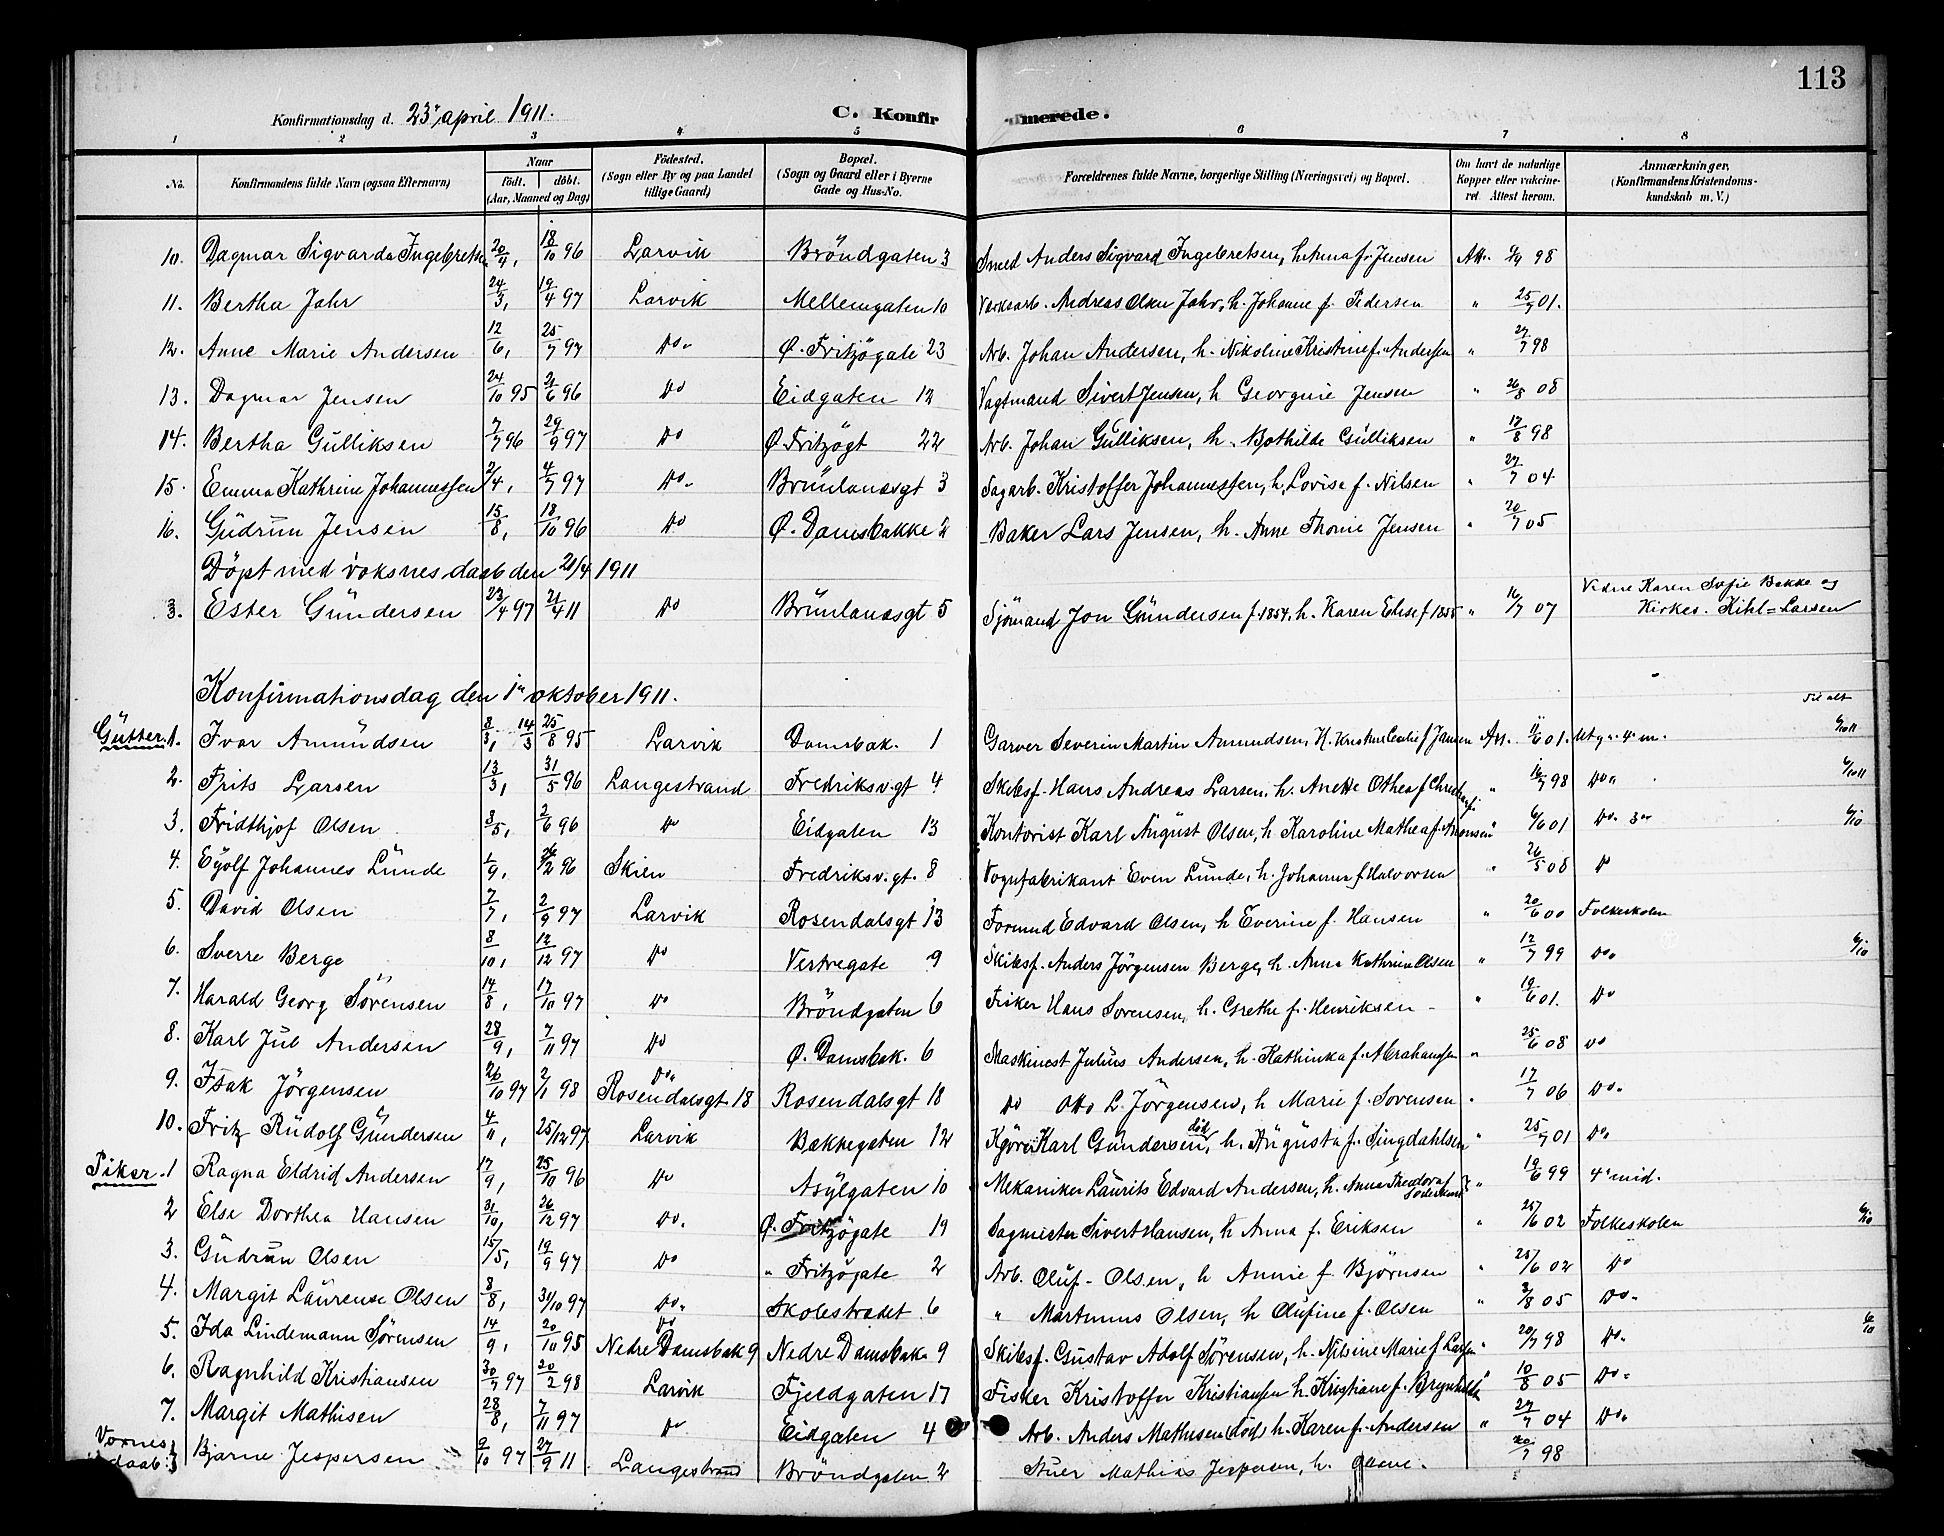 113
Konfirmationsdag d. 23de april 1911. C. Konfirmerede.
1 2 3 4 5 6 7 8
No. Konfirmandens fulde Navn (ogsaa Efternavn) Naar født. døbt. (Aar, Maaned og Dag) Fødested. (Sogn eller By og paa Landet tillige Gaard) Bopæl. (Sogn og Gaard eller i Byerne Gade og Hus-No. Forældrenes fulde Navne, borgerlige Stilling (Næringsvei) og Bopæl. Om havt de naturlige Kopper eller vakcineret. Attest herom. Anmærkninger, (Konfirmandens Kristendomskundskab m. V.)
10. Dagmar Sigvarda Ingebretsen 20/4, 18/10 96 Larvik Bröndgaten 3 Smed Anders Sigvard Ingebretsen, h. Anna f. Jensen Att. 98
11. Bertha Jahr 24/3, 19/4 97 Larvik Mellemgaten 10 Verksarb. Andreas Olsen Jahr, h. Johanne f. Pedersen " 25/7 01.
12. Anne Marie Andersen 12/6, 25/7 97 Do. Ø. Fritzögate 23 Arb. Johan Andersen, h. Nikoline Kristine f. Andersen " 27/7 98
13. Dagmar Jensen 24/10 95 21/6 96 Do Eidgaten 12 Vagtmand Sivert Jensen, h Georgine Jensen " 26/8 08
14. Bertha Gulliksen 7/7 96 29/9 97 Do Ø. Fritzögt 22 Arb. Johan Gulliksen, h. Bothilde Gulliksen " 17/8 98
15. Emma Kathrine Johannessen 2/4, 4/7 97 Do. Brunlanesgt 3 Sagarb. Kristoffer Johannessen, h. Lovise f. Nilsen " 27/7 04
16. Gudrun Jensen 15/8, 18/10 96 Do Ø. Damsbakke 2 Baker Lars Jensen, h. Anne Thonie Jensen " 20/7 05
Döpt med voksnes daab den 21/4 1911
3. Ester Gundersen 23/4 97 21/4 11 Do Brunlanesgt 5 Sjömand Jon Gundersen f. 1854, h. Karen Elise f 1855 " 16/7 07 Vidne Karen Sofie Bakke og
Kirkes. Kihl=Larsen
Konfirmationsdag den 1ste oktober 1911.
Gutter. 1. Ivar Amundsen 8/3, 14/3 25/8 95 Larvik Damsbak. 1 Garver Severin Martin Amundsen, H. Kristine Cecilie f Jansen Att. 01.
2. Frits Larsen 13/3, 31/5 96 Langestrand Fredriksv.gt 4 Skibsf. Hans Andreas Larsen, h. Anette Othea f " 16/7 98 Do.
3. Fridthjof Olsen 3/5, 2/6 96 Do Eidgaten 13 Kontorist Karl August Olsen, h Karoline Mathea f. " 6/6 01 Do. 6/10
4. Eyolf Johannes Lunde 1/9, 96 Skien Fredriksv.gt. 8 Vognfabrikant Even Lunde, h. Johanna f Halvorsen " 26/5 08 Do
5. David Olsen 7/7, 2/9 97 Larvik Rosendalsgt 13 Formand Edvard Olsen, h Everine f. Hansen " 20/6 00 Folkeskolen
6. Sverre Berge 8/10, 12/12 97 Do Vestregate 9 Skibsf. Anders Jörgensen Berge, h. Anna Kathrine Olsen " 12/7 99 Do. 6/10
7. Harald Georg Sörensen 14/8, 17/10 97 Do Bröndgaten 6 Fisker Hans Sörensen, h. Grethe f. Henriksen " 19/6 01. Do
8. Karl Jul Andersen 28/9, 7/11 97 Do Ø. Damsbak. 6 Maskinest Julius Andersen, h. Kathinka f. Abrahamsen " 25/6 08 Do
9. Isak Jörgensen 26/10 97 2/1 98 Do. Rosendalsgt 18 Rosendalsgt 18 Do Otto L. Jörgensen, h Marie f. Sorensen " 17/7 06 Do.
10. Fritz Rudolf Gundersen 4/11, 25/12 97 Larvik Bakkegaten 12 Kjörer Karl Gundersen död, h. Augusta f. Lingdahlsen " 25/7 01 Do.
Piker. 1 Ragna Eldrid Andersen 17/9, 25/10 96 Do Asylgaten 10 Mekaniker Laurits Edvard Andersen, h. Anna Theodora f " 19/6 99 4de mid.
2 Else Dorthea Hansen 31/10, 26/12 97 Do. Ø. Fritzögate 19 Sagmester Sivert Hansen, h Anna f. Eriksen " 25/6 02 Folkeskolen 6/10
3. Gudrun Olsen 15/5, 19/9 97 Do " Fritzögate 2 Arb. Oluf Olsen, h Annie f Björnsen " 25/6 02 Do
4. Margit Laurense Olsen 8/8, 31/10 97 Do. Skolestrædet 6 " Martinus Olsen, h Olufine f. Olsen " 3/8 05 Do.
5. Ida Lindemann Sørensen 14/9, 20/10 95 Do Nedre Damsbak 9 Nedre Damsbak 9 Skibsf. Gustav Adolf Sørensen, h. Nilsine Marie f Larsen " 20/7 98 Do. 6/10
6. Ragnhild Kristiansen 30/7 97 20/2 98 Larvik Fjeldgaten 17 Fisker Kristoffer Kristiansen h. Kristiane f. " 10/8 05 Do.
7. Margit Mathisen 28/8, 7/11 97 Do Eidgaten 4 Arb. Anders Mathisen död h. Karen f. Andersen " 27/7 04 Do.
Voxnes
daab. 3 Bjarne Jespersen 9/10 97 27/9 11 Langestrand Bröndgaten 2 Stuer Mathias Jespersen, h. 20/7 98